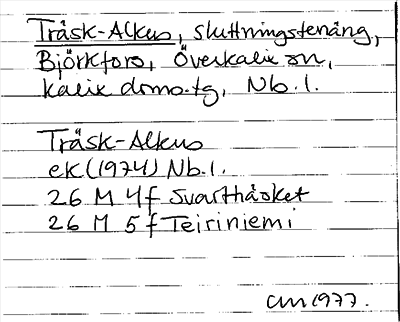 Träsk-Alkus, sluttningstenäng,
Björkfors, Överkalix sn,
Kalix doms.tg, Nb.l.
Träsk-Alkus
ek (1974) Nb.l.
26 M 4f Svarthåsket
26 M 5f Teiriniemi
cm 1977.